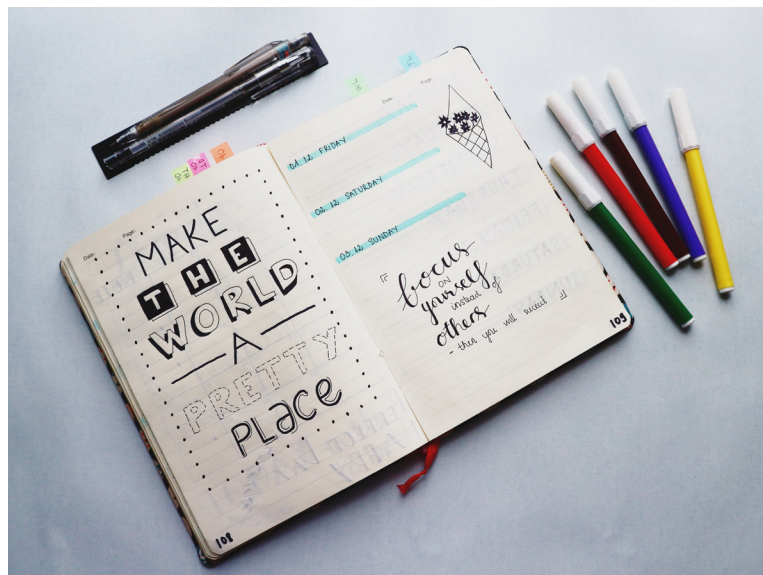 Date:
Page:
MAKE
THE
WORLD
A
PRETTY
PLACE
108
Date:
Page:
01.12 FRIDAY
02.12 SATURDAY
03.12 SUNDAY
focus
ON
yourself
instead of
others
- then you will succeed
109